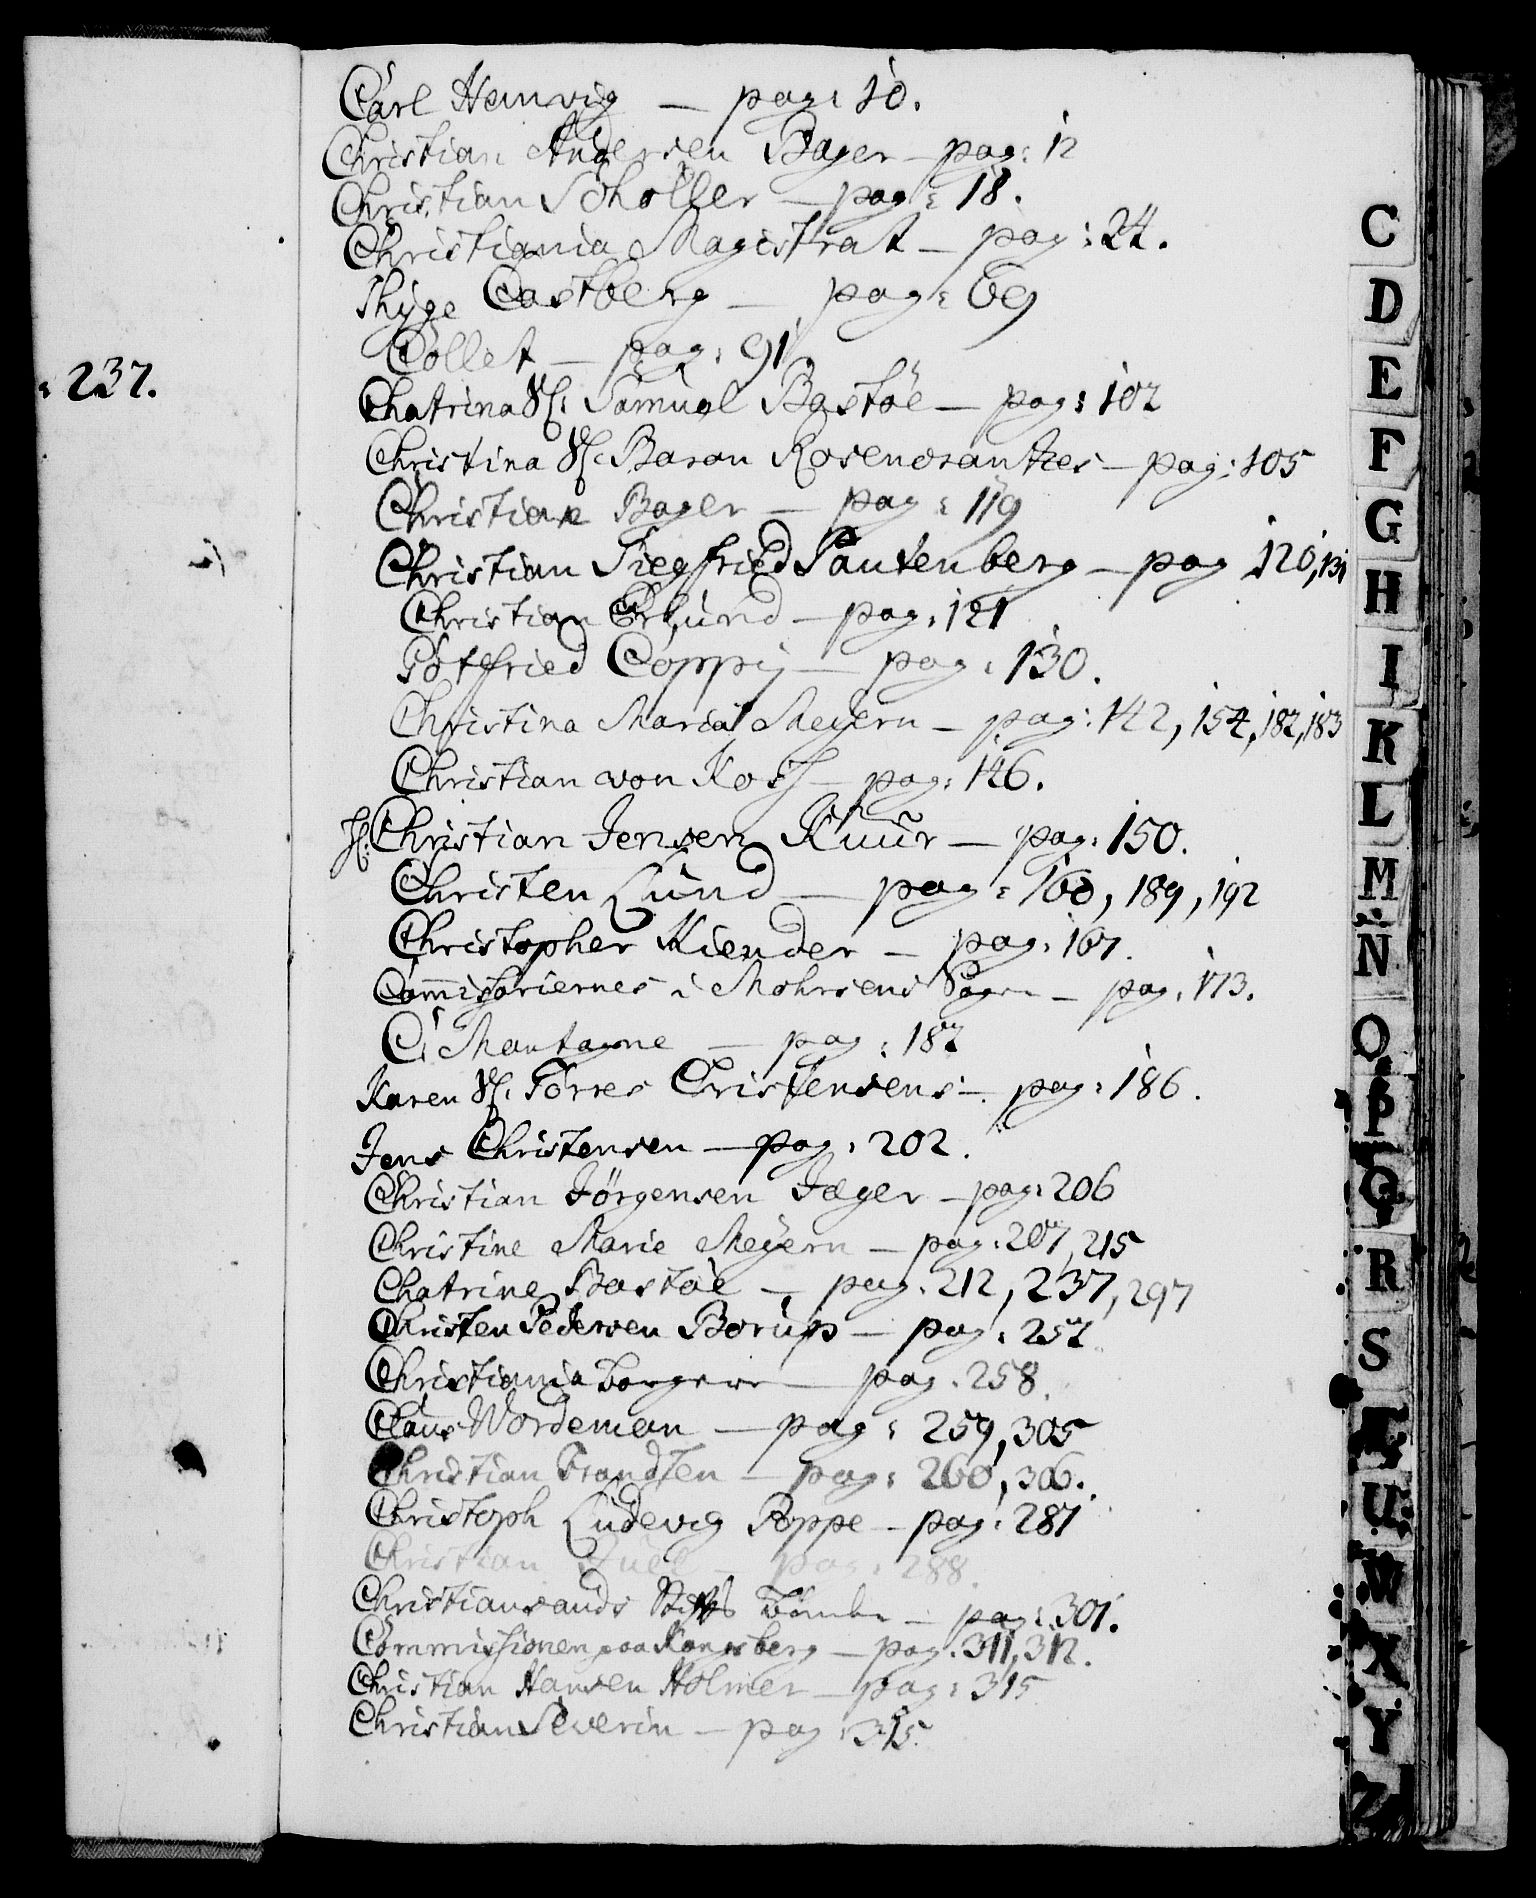 : 237.
Carl Hemvig — pag: 10.
Christian Andersen Bager — pag: 12
Christian Schøller — pag: 18.
Christiania Magistrat — pag: 24.
Thÿge Castberg — pag: 69
Collet — pag: 91
Chatrina Sl: Samuel Bastöe — pag: 102
Christina Sl: Baron Rosencrantzes — pag: 105
Christian Bager — pag: 119
Christian Siegfried Pautenberg — pag 120, 131
Christian Erlund — pag: 121
Gotfried Coppÿ — pag: 130.
Christina Maria Meÿern — pag: 142, 154, 182, 183
Christian von Koss — pag: 146.
Sl: Christian Jensen Kuur — pag: 150.
Christen Lund — pag: 160, 189, 192
Christopher Kiender — pag: 167.
Commissariernes i Mohrsens Sager — pag: 173.
C: Mantagne — pag: 182
Karen Sl: Törres Cristensens — pag: 186.
Jens Christensen — pag: 202.
Christian Jörgensen Jæger — pag: 206
Christine Marie Meÿern — pag: 207, 215
Chatrine Bastöe — pag: 212, 237, 297
Christen Pedersen Borup — pag: 252.
Christiania Borgere — pag. 258.
Claus Wordeman — pag: 259, 305
Christian Frandsen — pag: 260, 306.
Christoph Ludevig Poppe — pag: 287
Christian Juel — pag: 288.
Christiansands Stifts — pag: 301.
Commissionen paa Kongsberg — pag: 311, 312.
Christian Hansen Holmer — pag: 315
Christian Severin — pag: 315.
C
D
E
F
G
H
I
K
L
M
N
O
P
Q
R
S
U
W
X
Y
Z